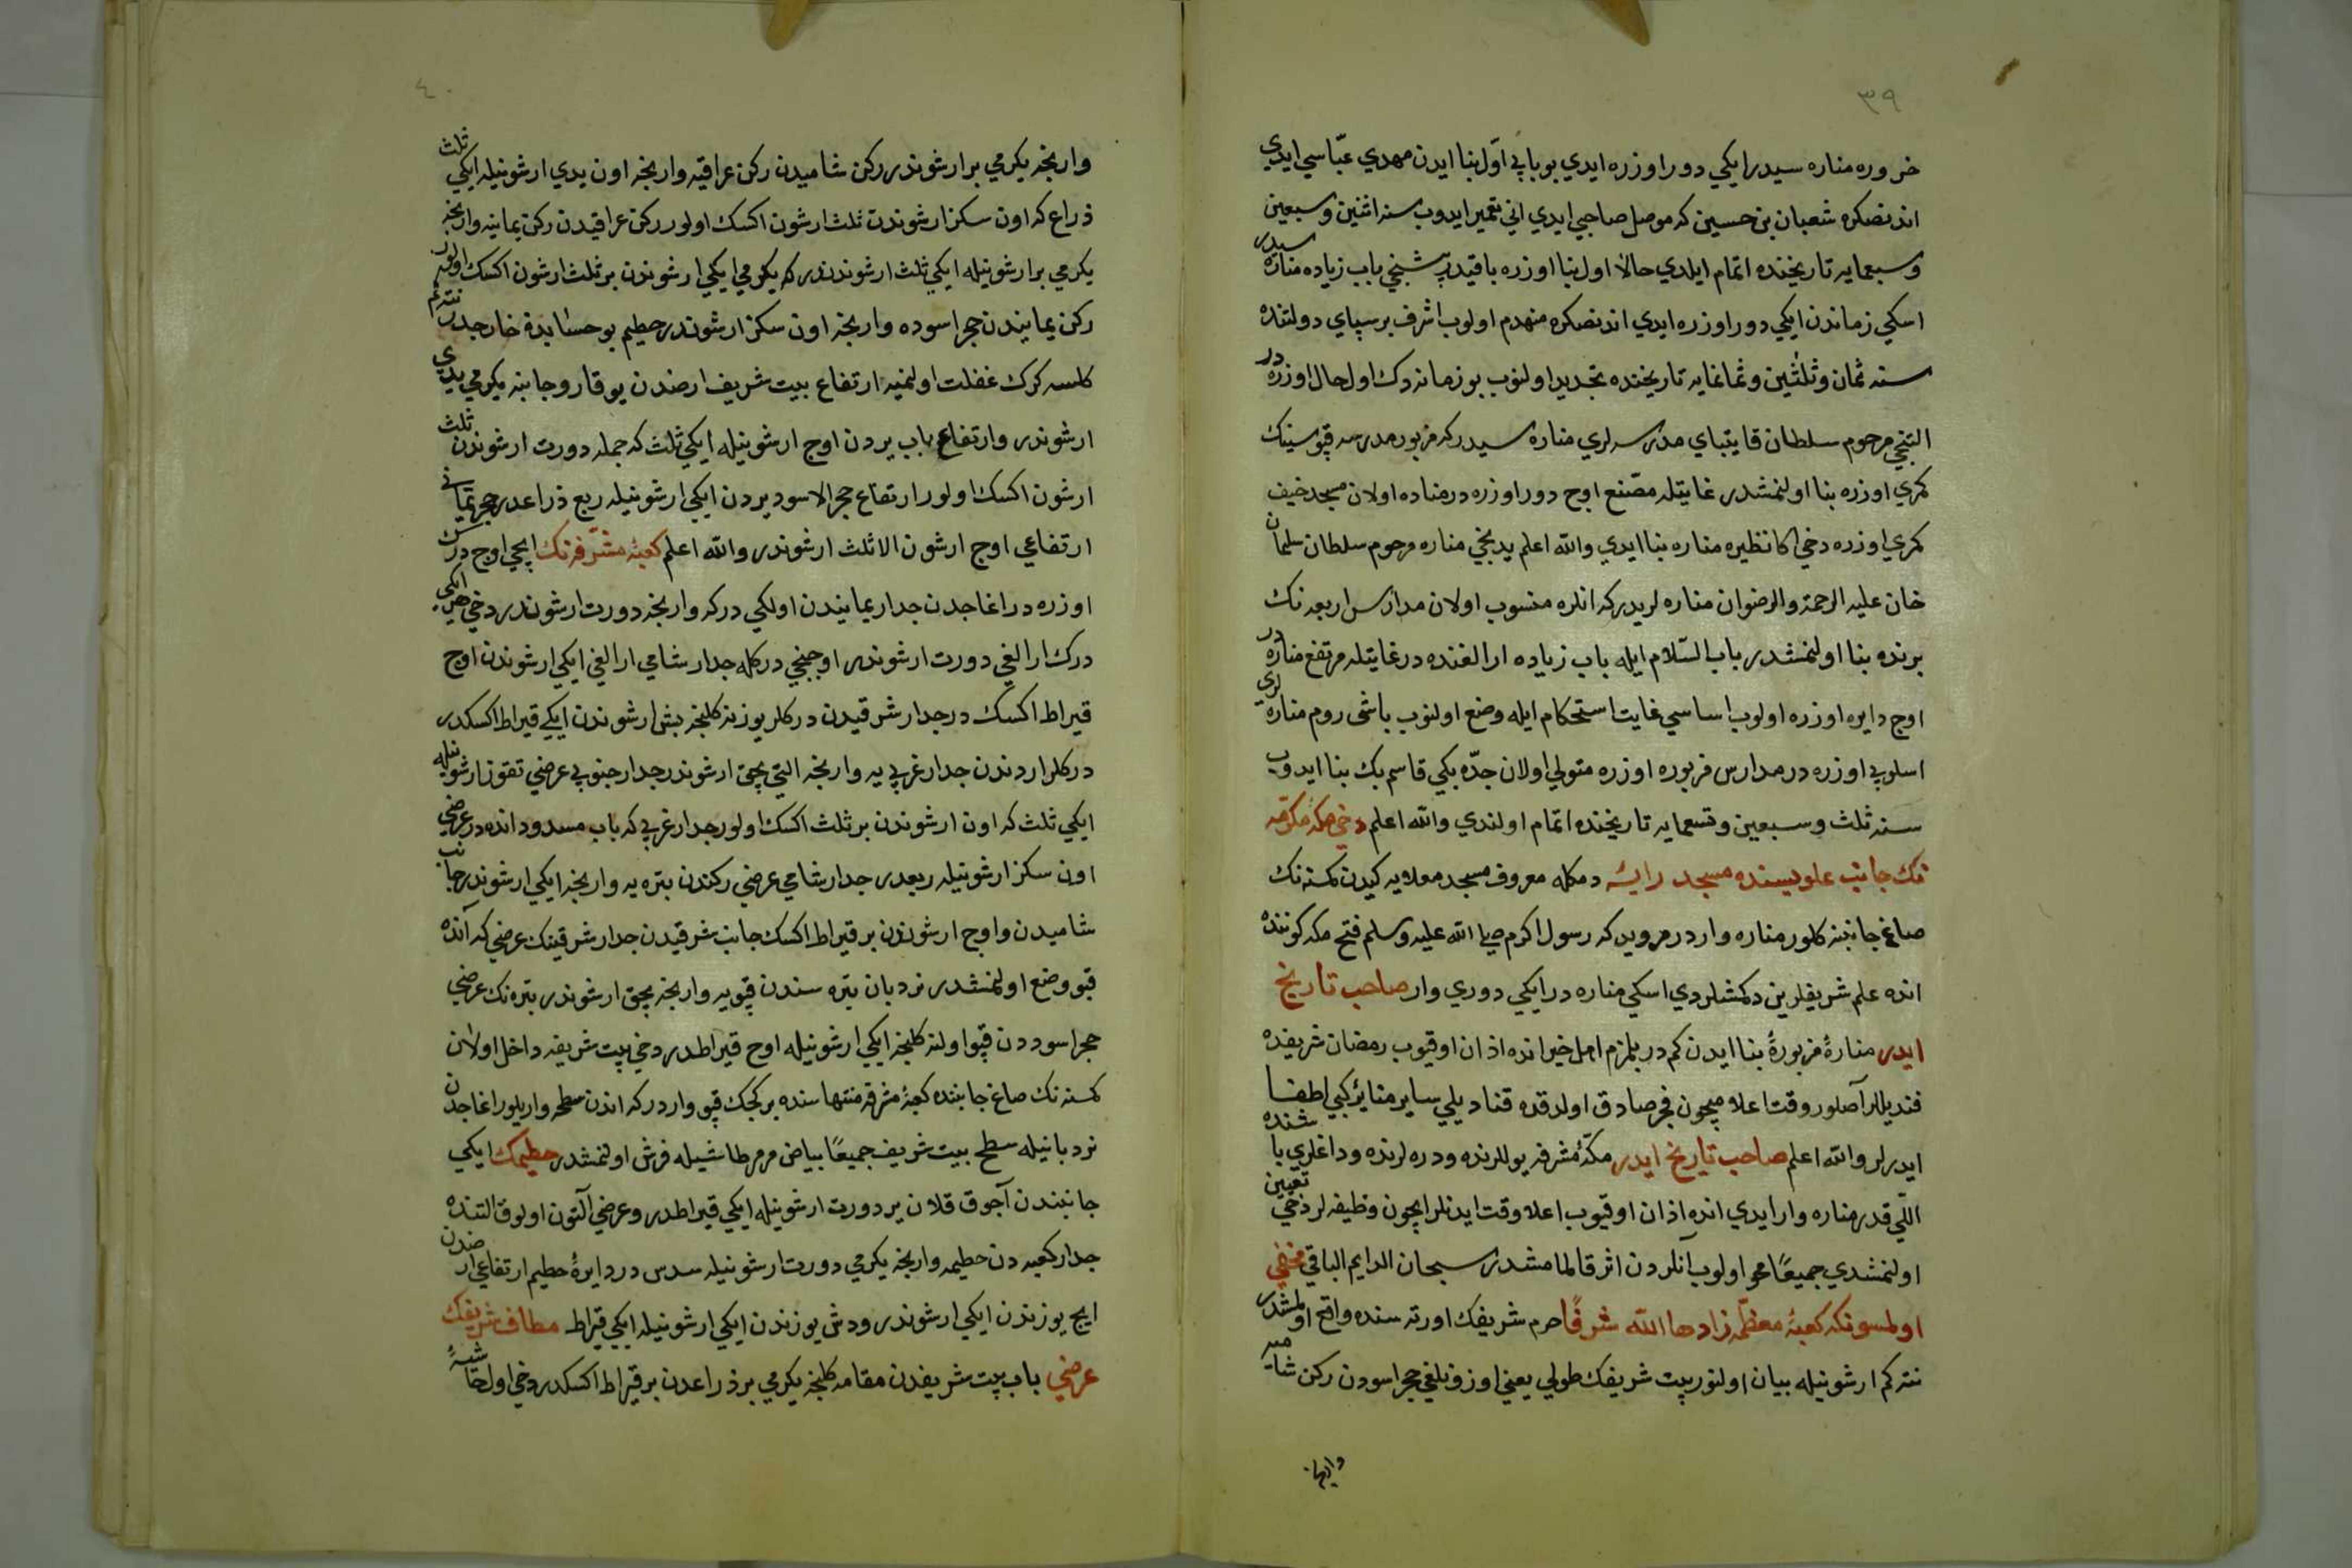 ٣٩
خزوره مناره سيدر ايكي دور اوزره ايدي بو بابي اول بنا ايدن مهدي عباسي ايدي
اندنصكره شعبان بن حسين كه موصل صاحبي ايدي اني تعمير ايدوب سنه اثنين وسبعين
وسبعمايه تاريخنده اتمام ايلدي حالا اول بنا اوزره باقيدر بشنجي باب زياده مناره سيدر
اسكي زماندن ايكي دور اوزره ايدي اندنصكره منهدم اولوب اشرف برسباي دولتنده
سنه ثمان وثلثين وثمانمايه تاريخنده تجديد اولنوب بو زمانه دك اول حال اوزره در
التنجي مرحوم سلطان قايتباي مدرسه لري مناره سيدر كه مزبور مدرسه قپوسينك
كمري اوزره بنا اولنمشدر غايتله مصنع اوج دور اوزره در مناده اولان مسجد خيف
كمري اوزره دخي اكا نظيره مناره بنا ايدي والله اعلم يدنجي مناره مرحوم سلطان سليمان
خان عليه الرحمة والرضوان مناره لريدر كه انلره منسوب اولان مدارس اربعه نك
برنده بنا اولنمشدر باب السلام ايله باب زياده ارالغنده در غايتله مرتفع مناره در
اوج دايره اوزره اولوب اساسي غايت استحكام ايله وضع اولنوب باشي روم مناره لري
اسلوبي اوزره در مدارس مزبوره اوزره متولي اولان جده بكي قاسم بك بنا ايدوب
سنه ثلث وسبعين وتسعمايه تاريخنده اتمام اولندي والله اعلم دخي مكه مكرمه
نك جانب علويسنده مسجد رايه دمكله معروف مسجد معلايه كيدن كمسنه نك
صاغ جانبنه كلور مناره واردر مرويدر كه رسول اكرم صلى الله عليه وسلم فتح مكه كوننده
انده علم شريفلرين دكمشلردي اسكي مناره در ايكي دوري وار صاحب تاريخ
ايدر منارهٔ مزبورهٔ بنا ايدن كمدر بلمزم اهل خير انده اذان اوقيوب رمضان شريفده
قنديللر آصلور وقت اعلامچون فجر صادق اولدقده قناديلي ساير منابر كبي اطفا
ايدرلر والله اعلم صاحب تاريخ ايدر مكهٔ مشرفه يوللرنده ودره لرنده وداغلري باشنده
اللي قدر مناره وار ايدي انده اذان اوقيوب اعلا وقت ايدنلر ايچون وظيفه لر دخي تعيين
اولنمشدي جميعاً محو اولوب آنلردن اثر قالمامشدر سبحان الدايم الباقي مخفي
اولمسونكه كعبهٔ معظمه زادها الله شرفًا حرم شريفك اورته سنده واقع اولمشدر
نته كم ارشونيله بيان اولنور بيت شريفك طولي يعني اوزونلغي حجر اسوددن ركن شاميه
وارنجه
٤٠
وارنجه يكرمي بر ارشوندر ركن شاميدن ركن عراقيه وارنجه اون يدي ارشونيله ايكي ثلث
ذراع كه اون سكز ارشوندن ثلث ارشون اكسك اولور ركن عراقيدن ركن يمانيه وارنجه
يكرمي بر ارشونيله ايكي ثلث ارشوندندر كه يكرمي ايكي ارشوندن بر ثلث ارشون اكسك اولور
ركن يمانيدن حجر اسوده وارنجه اون سكز ارشوندر حطيم بو حسابدن خارجدر نته كم
كلسه كرك غفلت اولنميه ارتفاع بيت شريف ارضدن يوقارو جانبه يكرمي يدي
ارشوندر وارتفاع باب يردن اوج ارشونيله ايكي ثلث كه جمله دورت ارشوندن ثلث
ارشون اكسك اولور ارتفاع حجر الاسود يردن ايكي ارشونيله ربع ذراعدر حجر يماني
ارتفاعي اوج ارشون الا ثلث ارشوندر والله اعلم كعبهٔ مشرفه نك ايچي اوج درك
اوزره در اغاجدن جدار يمانيدن اولكي دركه وارنجه دورت ارشوندر دخي هر ايكي
درك ارالغي دورت ارشوندر اوچنجي دركله جدار شامي ارالغي ايكي ارشوندن اوج
قيراط اكسك در جدار شرقيدن دركلر يوزينه كلنجه بش ارشوندن ايكي قيراط اكسكدر
دركلر اردندن جدار غربي يه وارنجه التي بچق ارشوندر جدار جنوبي عرضي تقوز ارشونيله
ايكي ثلث كه اون ارشوندن بر ثلث اكسك اولور جدار غربي كه باب مسدود انده در عرضي
اون سكز ارشونيله ربعدر جدار شامي عرضي ركندن بتره يه وارنجه ايكي ارشوندر جانب
شاميدن واوج ارشوندن بر قيراط اكسك جانب شرقيدن جدار شرقينك عرضي كه آنده
قپو وضع اولنمشدر نردبان بتره سندن قپويه وارنجه بچق ارشوندر بتره نك عرضي
حجر اسوددن قپو اولنه كلنجه ايكي ارشونيله اوج قيراطدر دخي بيت شريفه داخل اولان
كمسنه نك صاغ جانبنده كعبهٔ مشرفه منتهاسنده بر كچك قپو واردر كه اندن سطحه واريلور اغاجدن
نردبانيله سطح بيت شريف جميعاً بياض مرمر طاشيله فرش اولنمشدر حطيمك ايكي
جانبندن آچوق قلان ير دورت ارشونيله ايكي قيراطدر وعرضي آلتون اولوق التنده
جدار كعبه دن حطيمه وارنجه يكرمي دورت ارشونيله سدس در دايرهٔ حطيم ارتفاعي ارضدن
ايچ يوزندن ايكي ارشوندر ودش يوزندن ايكي ارشونيله ايكي قيراط مطاف شريفك
عرضي باب بيت شريفدن مقامه كلنجه يكرمي بر ذراعدن بر قيراط اكسكدر دخي اول حاشيهٔ